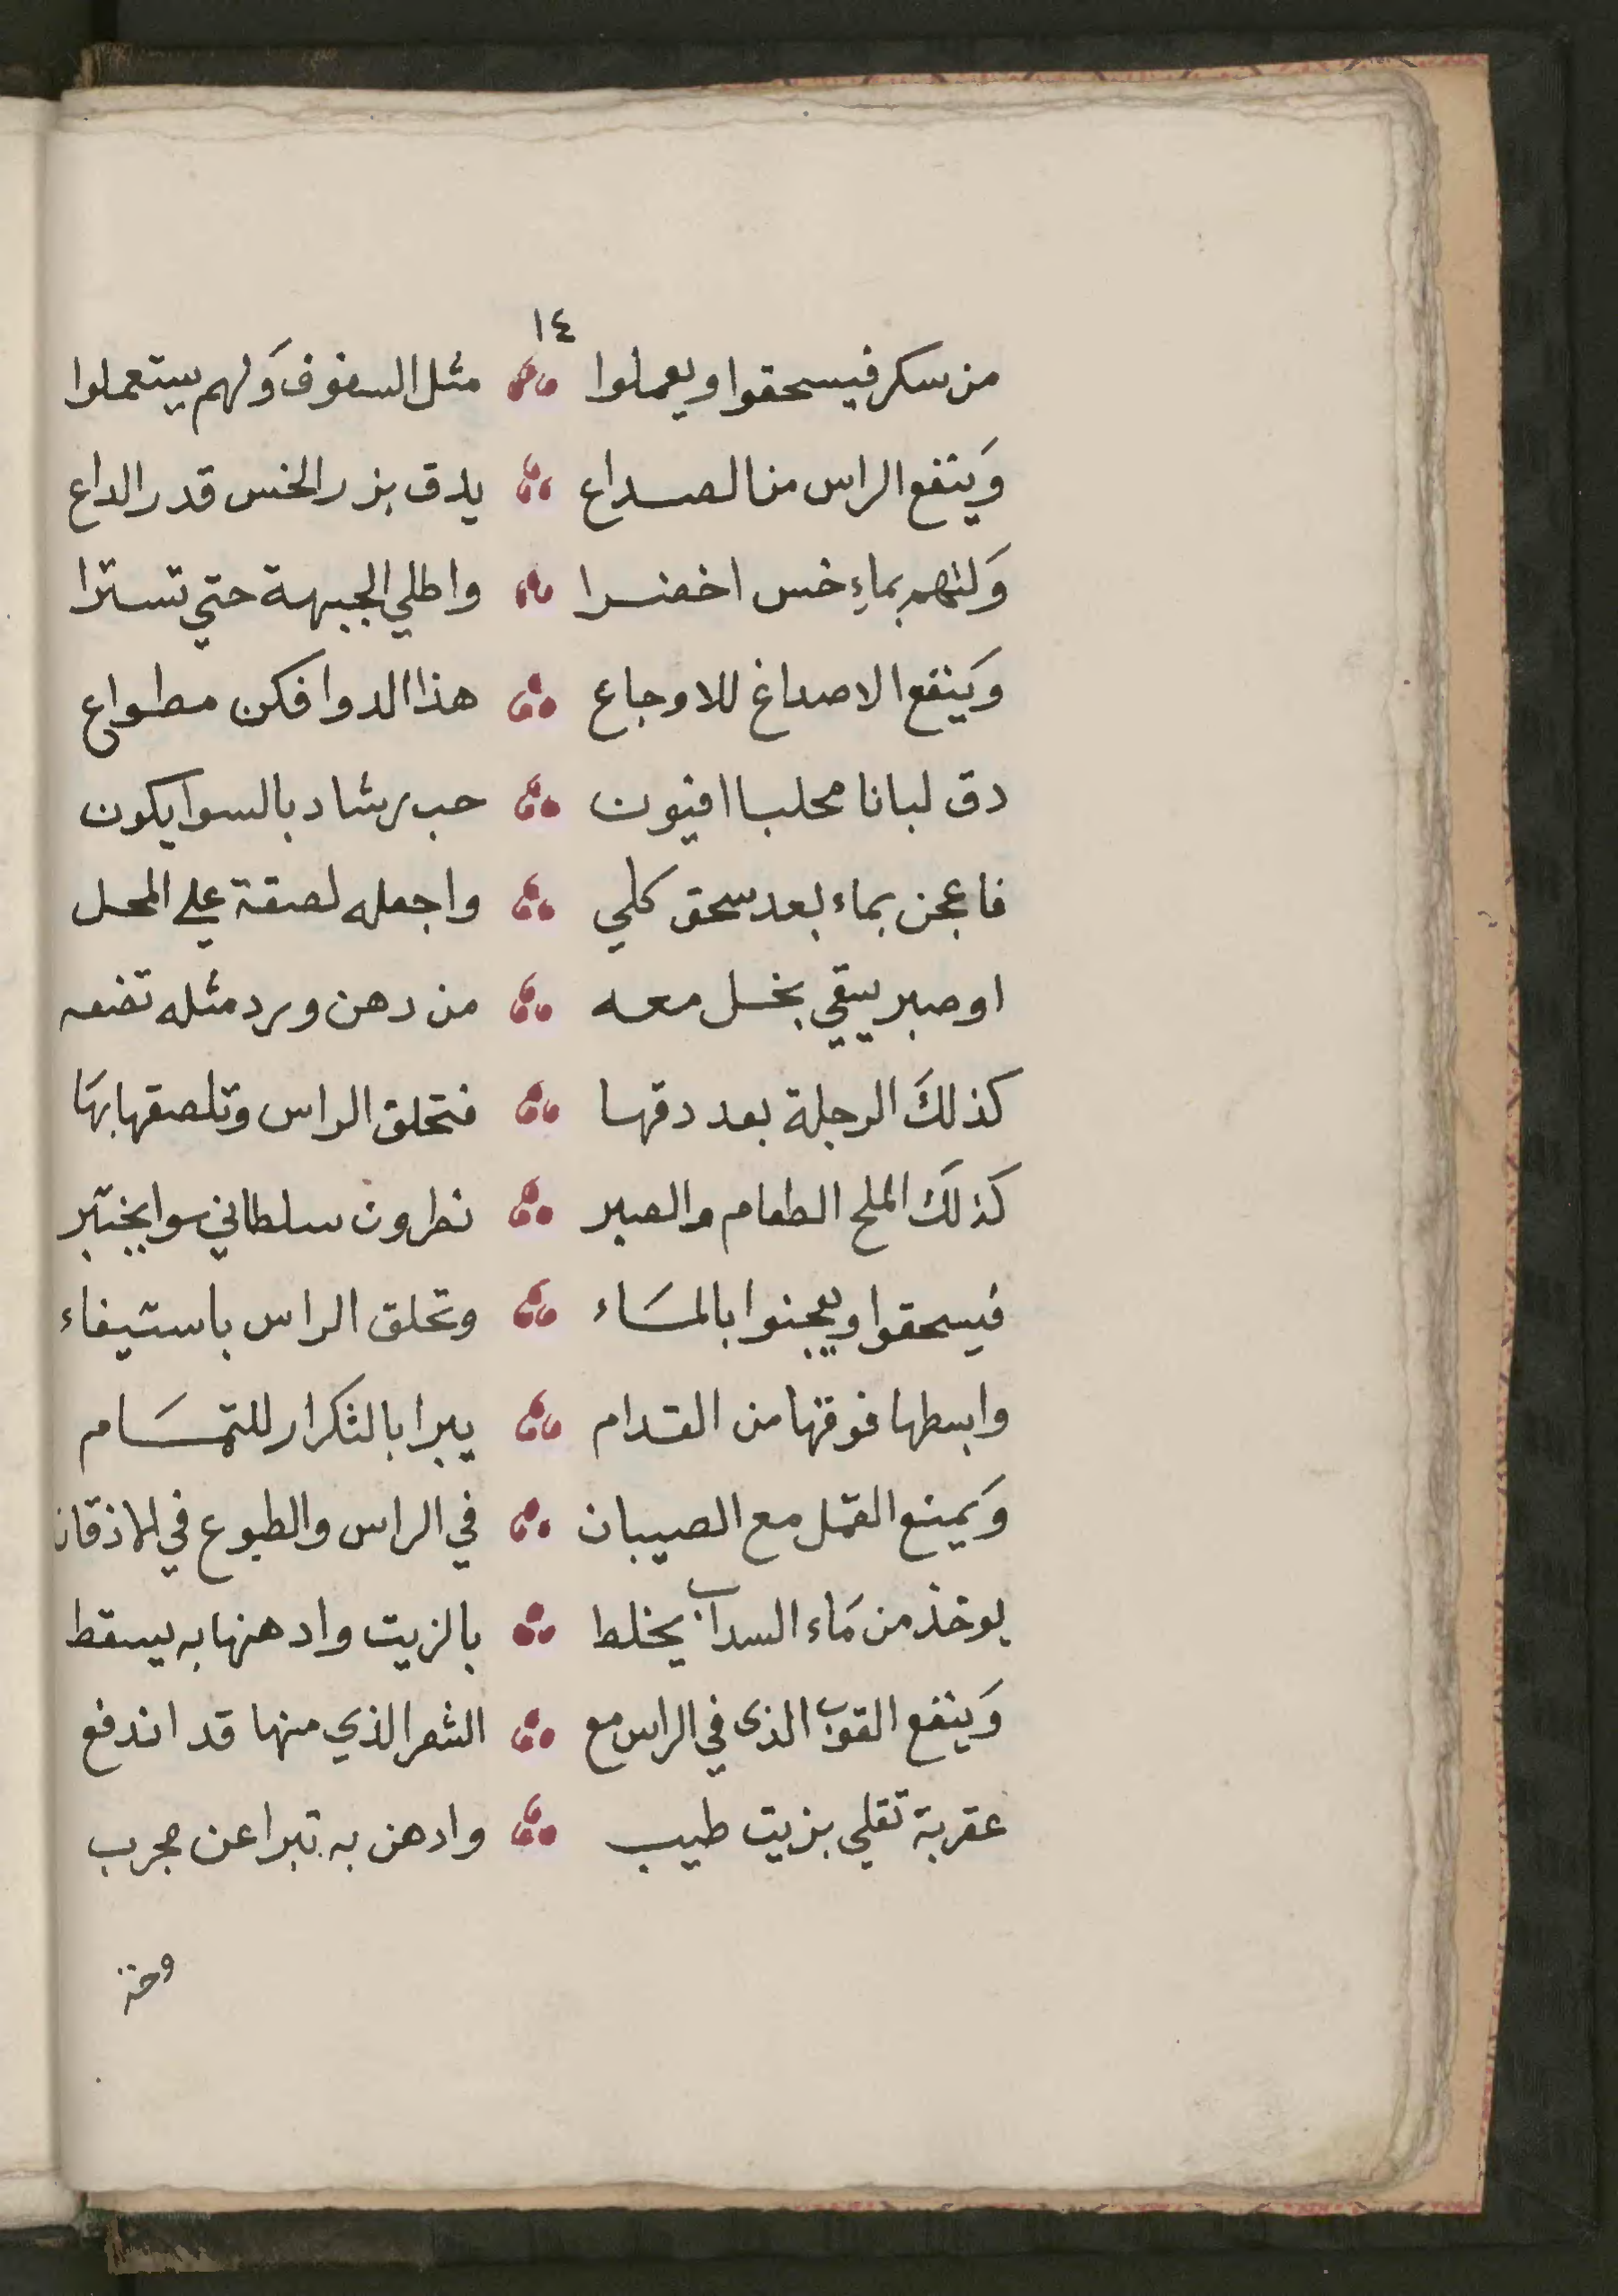 ١٤
من سكر فيسحقوا ويعملوا مثل السفوف وَلهم يستعملوا
وَينفع الراس من الصداع يدق بزر الخس قدر الداع
وَلتهم بماءِ خس اخضرا واطلي الجبهة حتي تسترا
وَينفع الاصداغ للاوجاع هذا الدوا فكن مطواع
دق لبانا محلبا افيون حب رشاد بالسوا يكون
فاعجن بماء بعد سحق كلي واجعله لصقة علي المحل
او صبر يبقي بخل معه من دهن ورد مثله تضعه
كذلكَ الرجلة بعد دقها فتحلق الراس وتلصقها بهَا
كذلكَ الملح الطعام والصبر نطرون سلطاني سوا يختبر
فيسحقوا ويعجنوا بالمَاء وتحلق الراس باستيفاء
وابسطها فوقها من القدام يبرا بالتكرار للتمَام
وَيمنع القمل مع الصيبان في الراس والطبوع في الاذقان
يوخذ من مَاء السداب يخلط بالزيت وادهنها به يسقط
وَينفع القوب الذي في الراس مع الشعر الذي منها قد اندفع
عقربة تقلي بزيت طيب وادهن به تبرا عن مجرب